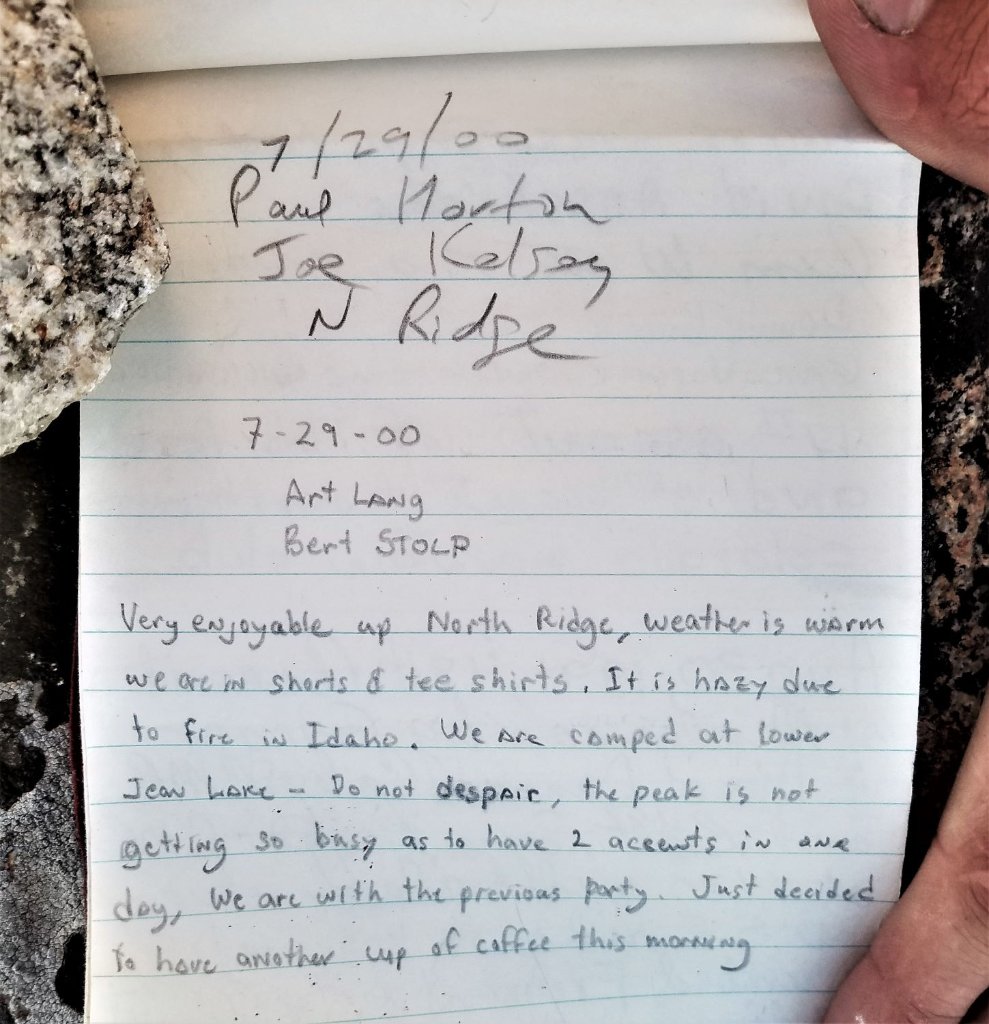 7/29/00
Paul Horton
Joe Kelsey
N Ridge
7-29-00
Art LANG
Bert STOLP
Very enjoyable up North Ridge, weather is warm
we are in shorts & tee shirts. It is hazy due
to fire in Idaho. We are camped at lower
Jean Lake - Do not despair, the peak is not
getting so busy as to have 2 accents in one
day, We are with the previous party. Just decided
to have another cup of coffee this morning